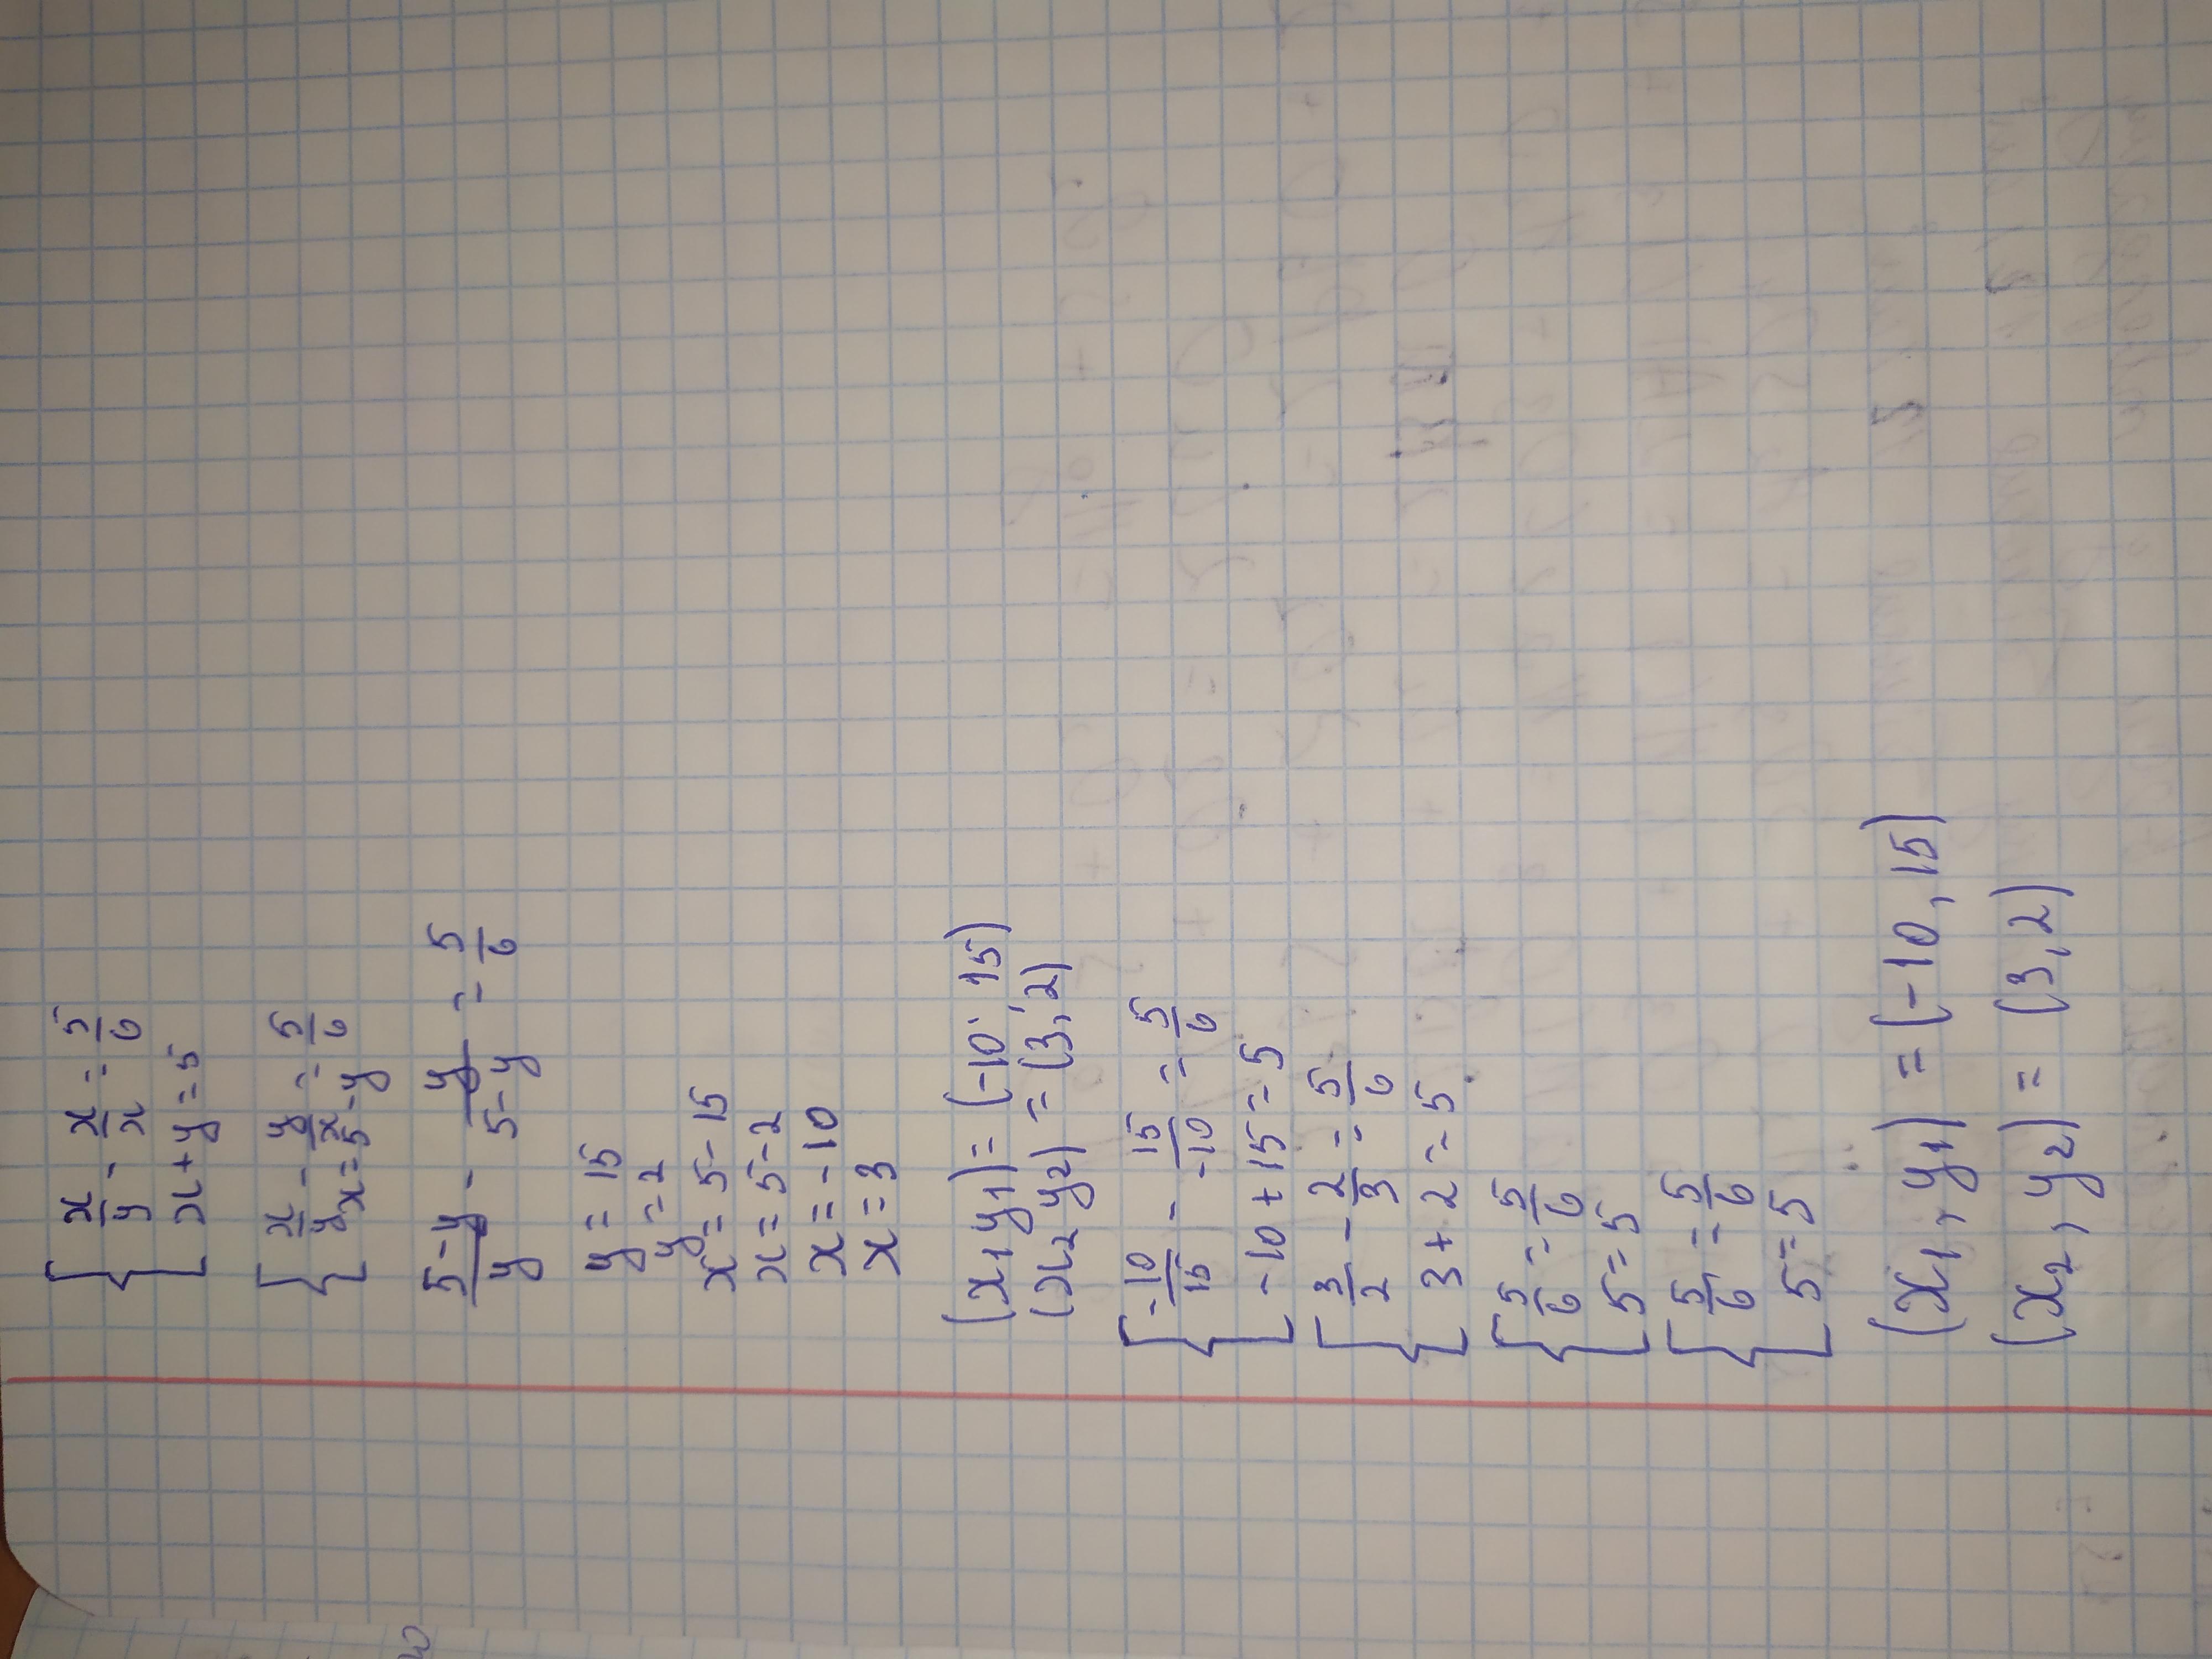 { x/y - x/x = 5/6
x + y = 5
{ x/y - y/x = 5/6
x = 5 - y
5-y/y - y/5-y = 5/6
y = 15
y = 2
x = 5 - 15
x = 5 - 2
x = -10
x = 3
(x₁ y₁) = (-10; 15)
(x₂ y₂) = (3; 2)
{ -10/15 - 15/-10 = 5/6
-10 + 15 = 5
{ 3/2 - 2/3 = 5/6
3 + 2 = 5
{ 5/6 = 5/6
5 = 5
{ 5/6 = 5/6
5 = 5
(x₁, y₁) = (-10, 15)
(x₂, y₂) = (3, 2)